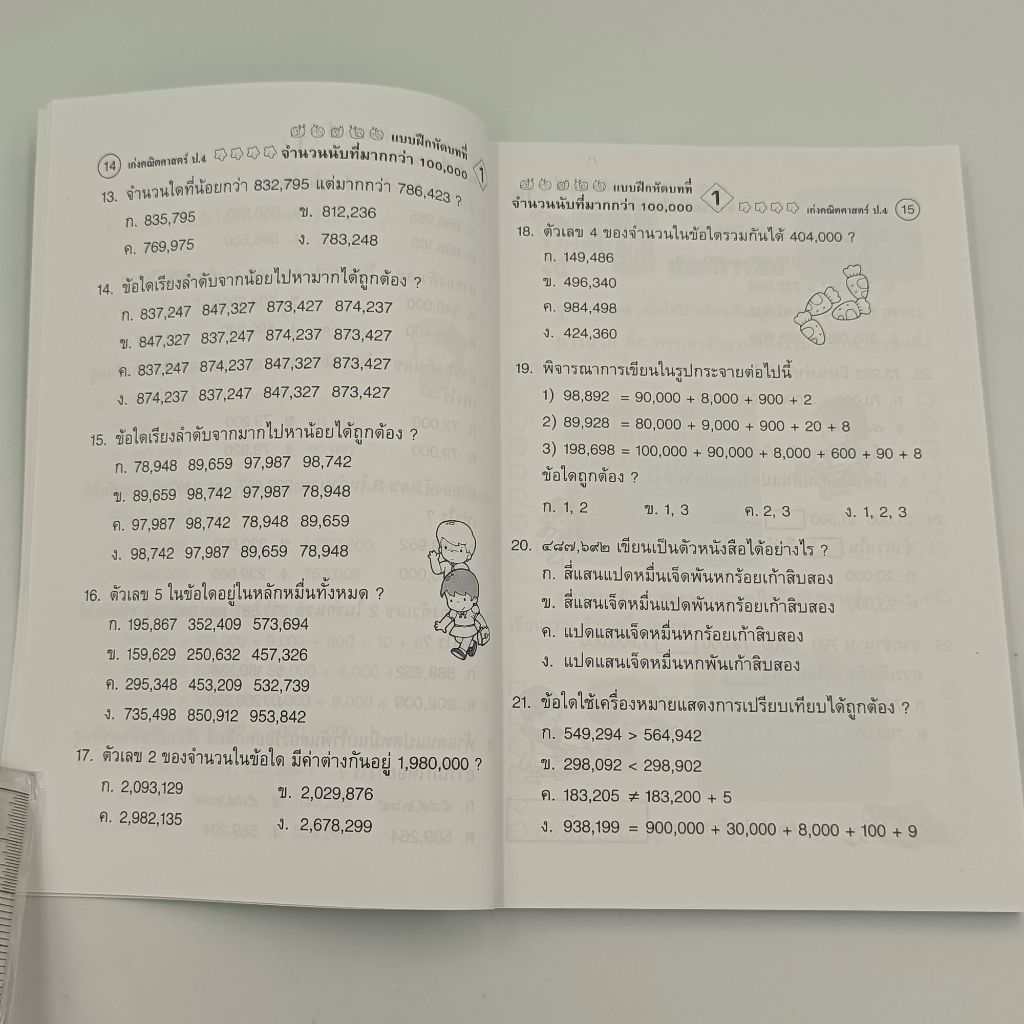 แบบฝึกหัดบทที่
14 เก่งคณิตศาสตร์ ป.4 จำนวนนับที่มากกว่า 100,000 1
13. จำนวนใดที่น้อยกว่า 832,795 แต่มากกว่า 786,423 ?
ก. 835,795 ข. 812,236
ค. 769,975 ง. 783,248
14. ข้อใดเรียงลำดับจากน้อยไปหามากได้ถูกต้อง ?
ก. 837,247 847,327 873,427 874,237
ข. 847,327 837,247 874,237 873,427
ค. 837,247 874,237 847,327 873,427
ง. 874,237 837,247 847,327 873,427
15. ข้อใดเรียงลำดับจากมากไปหาน้อยได้ถูกต้อง ?
ก. 78,948 89,659 97,987 98,742
ข. 89,659 98,742 97,987 78,948
ค. 97,987 98,742 78,948 89,659
ง. 98,742 97,987 89,659 78,948
16. ตัวเลข 5 ในข้อใดอยู่ในหลักหมื่นทั้งหมด ?
ก. 195,867 352,409 573,694
ข. 159,629 250,632 457,326
ค. 295,348 453,209 532,739
ง. 735,498 850,912 953,842
17. ตัวเลข 2 ของจำนวนในข้อใด มีค่าต่างกันอยู่ 1,980,000 ?
ก. 2,093,129 ข. 2,029,876
ค. 2,982,135 ง. 2,678,299
แบบฝึกหัดบทที่
จำนวนนับที่มากกว่า 100,000 1 เก่งคณิตศาสตร์ ป.4 15
18. ตัวเลข 4 ของจำนวนในข้อใดรวมกันได้ 404,000 ?
ก. 149,486
ข. 496,340
ค. 984,498
ง. 424,360
19. พิจารณาการเขียนในรูปกระจายต่อไปนี้
1) 98,892 = 90,000 + 8,000 + 900 + 2
2) 89,928 = 80,000 + 9,000 + 900 + 20 + 8
3) 198,698 = 100,000 + 90,000 + 8,000 + 600 + 90 + 8
ข้อใดถูกต้อง ?
ก. 1, 2 ข. 1, 3 ค. 2, 3 ง. 1, 2, 3
20. ๔๘๗,๖๙๒ เขียนเป็นตัวหนังสือได้อย่างไร ?
ก. สี่แสนแปดหมื่นเจ็ดพันหกร้อยเก้าสิบสอง
ข. สี่แสนเจ็ดหมื่นแปดพันหกร้อยเก้าสิบสอง
ค. แปดแสนเจ็ดหมื่นหกร้อยเก้าสิบสอง
ง. แปดแสนเจ็ดหมื่นหกพันเก้าสิบสอง
21. ข้อใดใช้เครื่องหมายแสดงการเปรียบเทียบได้ถูกต้อง ?
ก. 549,294 > 564,942
ข. 298,092 < 298,902
ค. 183,205 ≠ 183,200 + 5
ง. 938,199 = 900,000 + 30,000 + 8,000 + 100 + 9